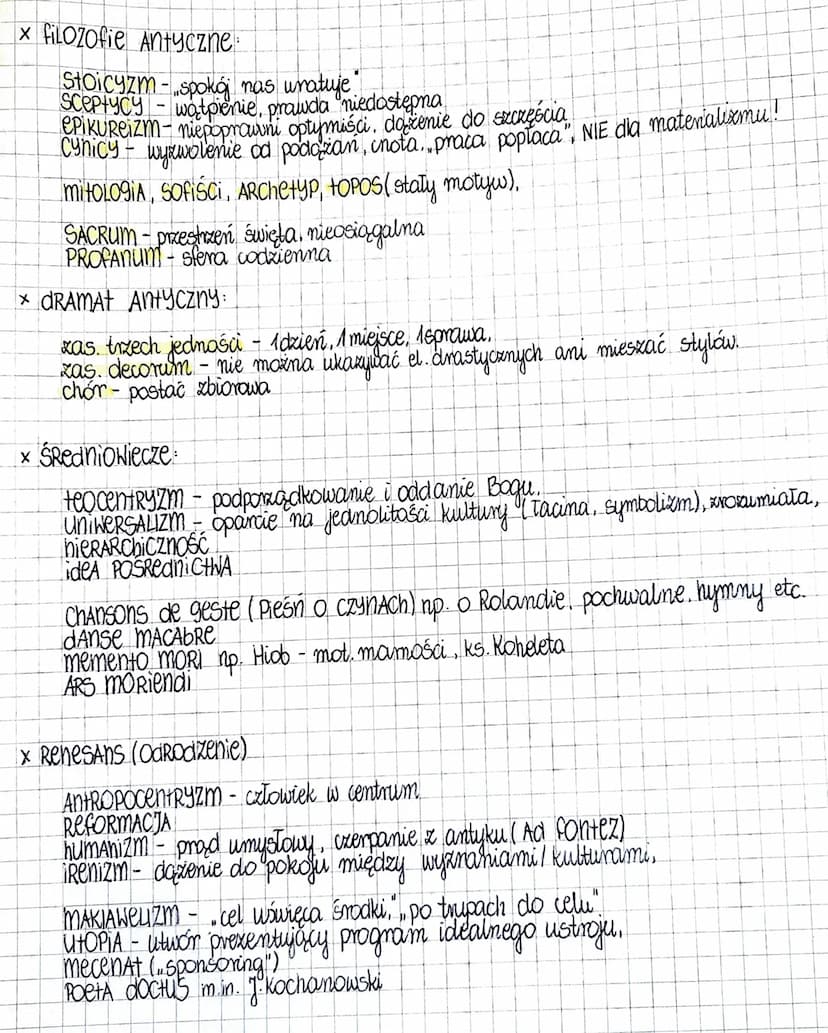 x FILOZOFIE ANTYCZNE:
STOICYZM - „spokój nas uratuje"
SCEPTYCY - wątpienie, prawda niedostępna
EPIKUREIZM - niepoprawni optymiści, dążenie do szczęścia
CYNICY - wyzwolenie od podążań, cnota, „praca popłaca", NIE dla materializmu!
MITOLOGIA, SOFIŚCI, ARCHETYP, TOPOS (stały motyw),
SACRUM - przestrzeń święta, nieosiągalna
PROFANUM - sfera codzienna
x DRAMAT ANTYCZNY:
zas. trzech jedności - 1 dzień, 1 miejsce, 1 sprawa,
zas. decorum - nie można ukazywać el. drastycznych ani mieszać stylów.
chór - postać zbiorowa
x ŚREDNIOWIECZE:
TEOCENTRYZM - podporządkowanie i oddanie Bogu,
UNIWERSALIZM - oparcie na jednolitości kultury (łacina, symbolizm), zrozumiała,
HIERARCHICZNOŚĆ
IDEA POŚREDNICTWA
CHANSONS de geste (PIEŚŃ O CZYNACH) np. o Rolandie, pochwalne, hymny etc.
DANSE MACABRE
MEMENTO MORI np. Hiob - mot. marności, ks. Koheleta
ARS MORIENDI
x RENESANS (ODRODZENIE)
ANTROPOCENTRYZM - człowiek w centrum
REFORMACJA
HUMANIZM - prąd umysłowy, czerpanie z antyku (Ad FONTEZ)
IRENIZM - dążenie do pokoju między wyznaniami / kulturami,
MAKIAWELIZM - „cel uświęca środki," „po trupach do celu"
UTOPIA - utwór prezentujący program idealnego ustroju,
MECENAT („sponsoring")
POETA DOCTUS m.in. J. Kochanowski